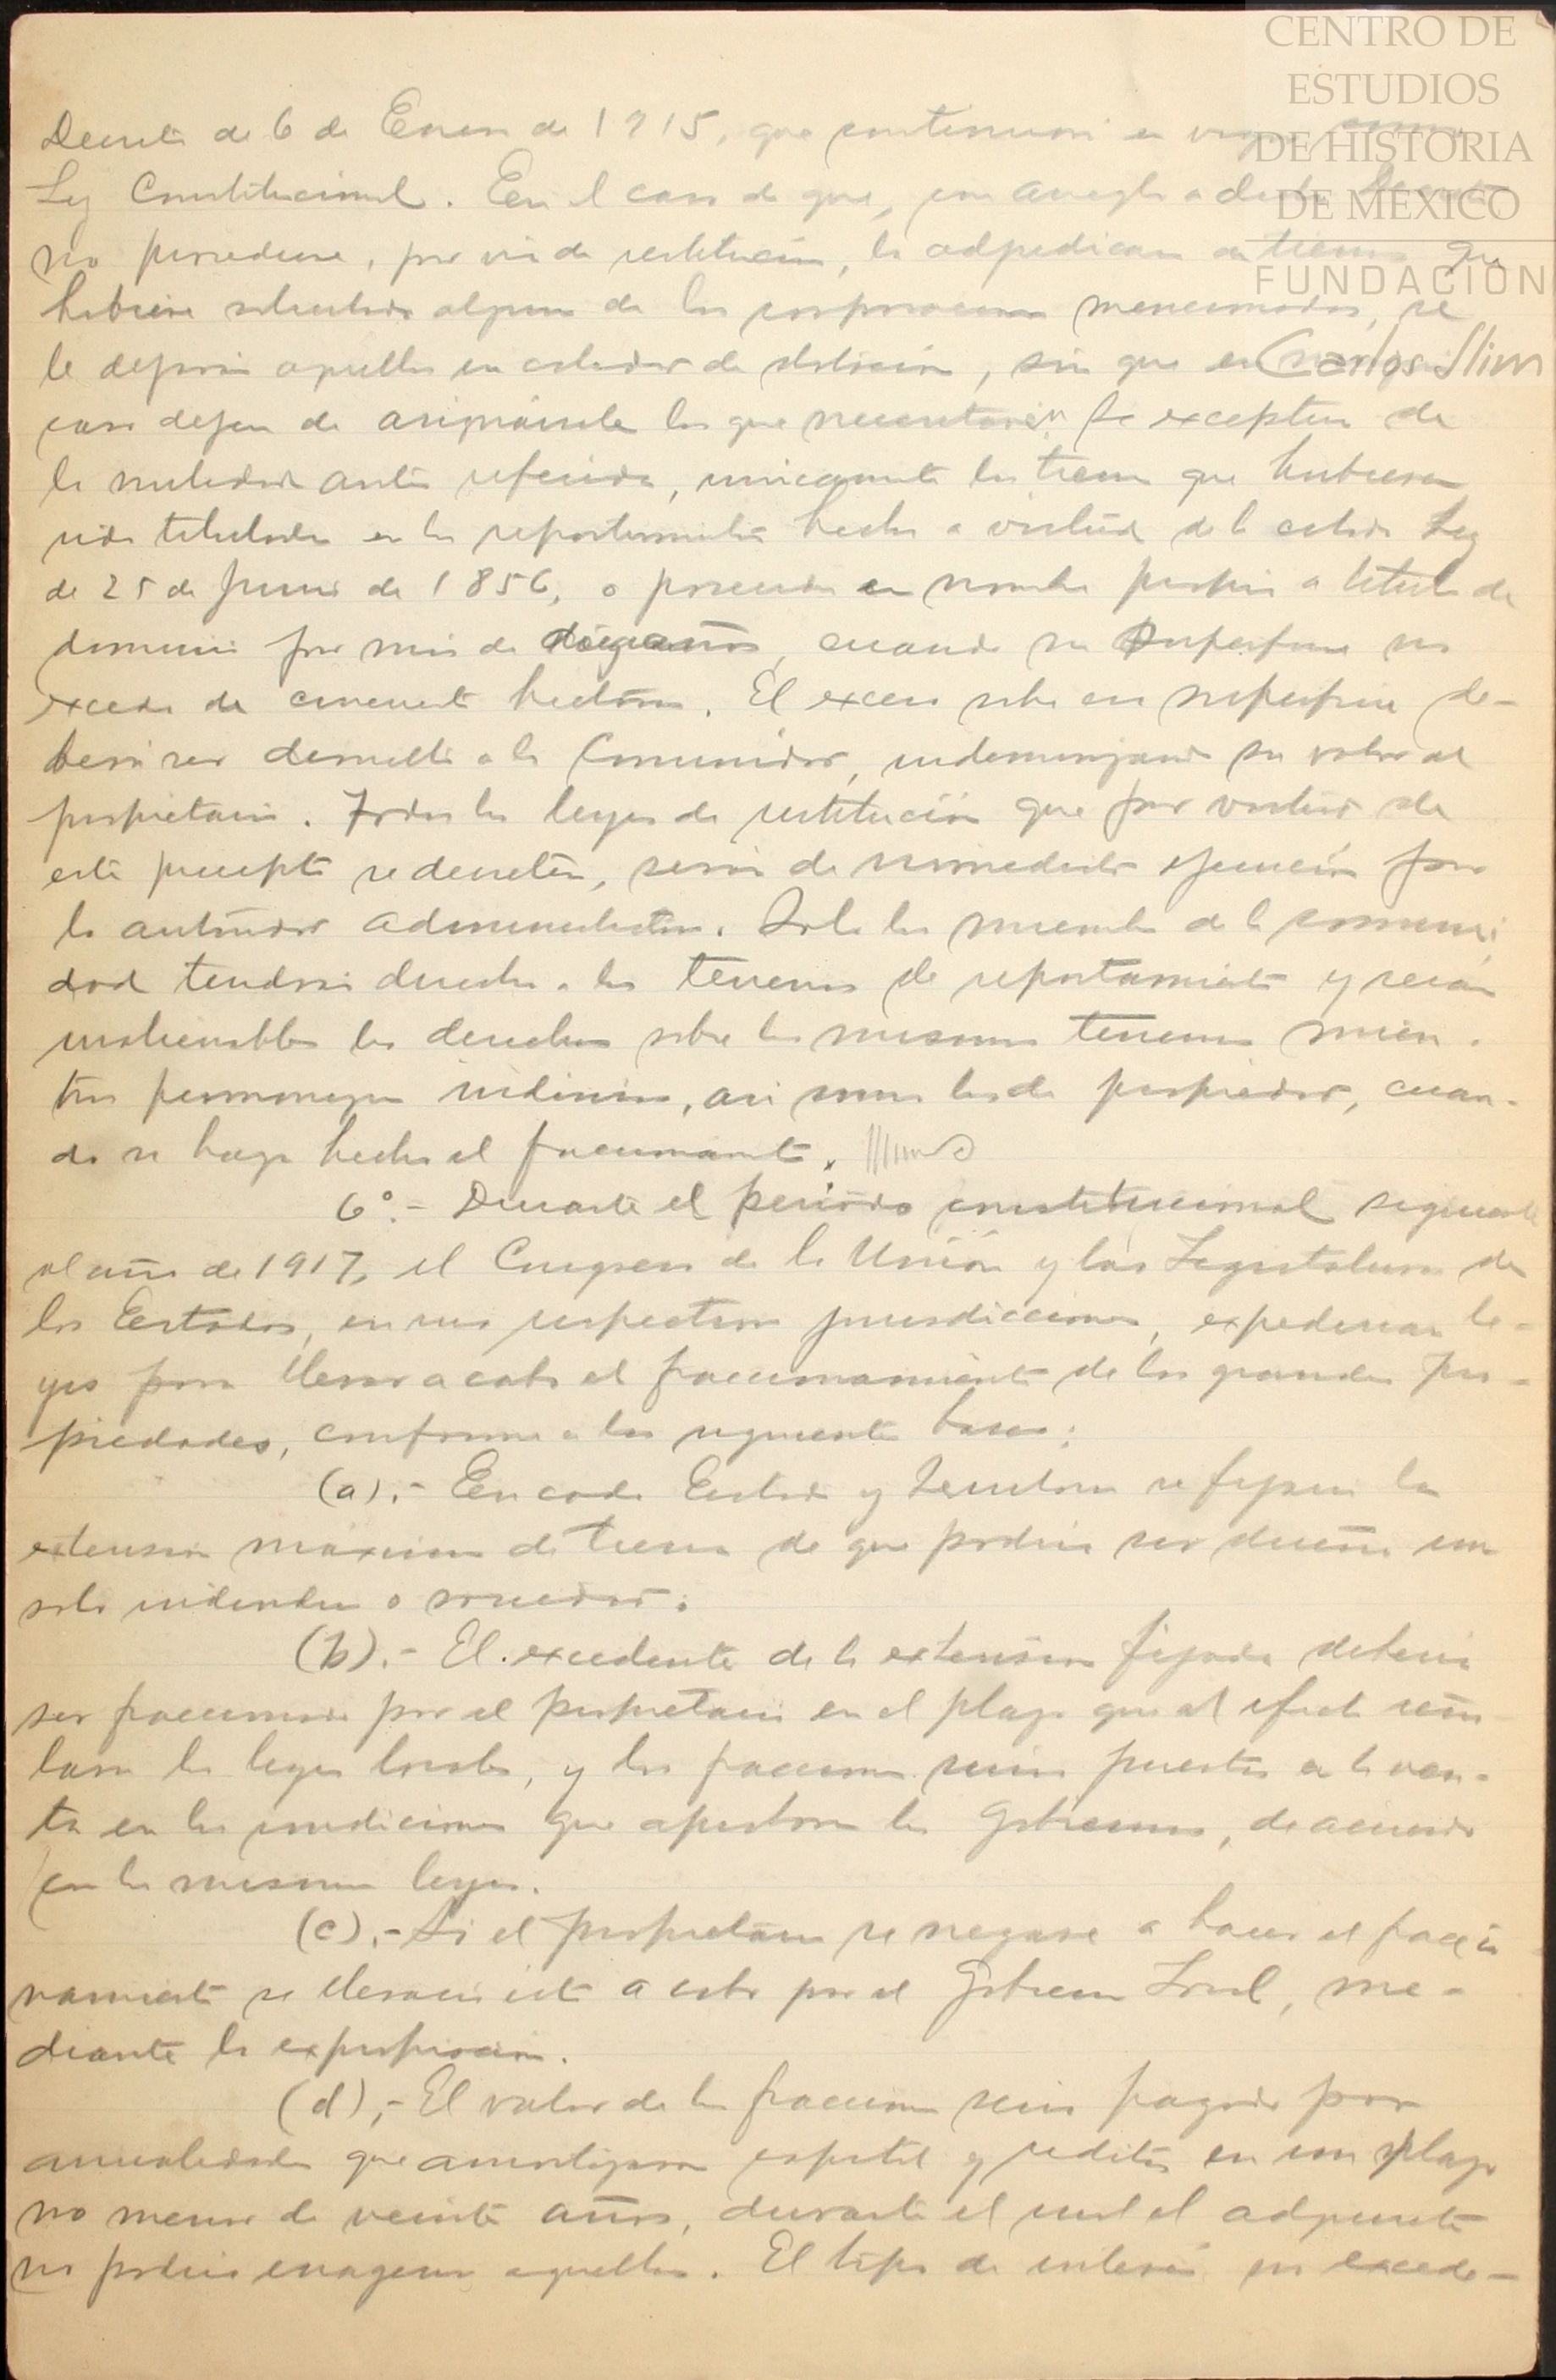 CENTRO DE
ESTUDIOS
DE HISTORIA
DE MÉXICO
FUNDACIÓN
Carlos Slim
Decreto de 6 de Enero de 1915, que continuará en vigor como
Ley Constitucional. En el caso de que, con arreglo a dicho Decreto
no procediere, por vía de restitución, la adjudicación de tierras que
hubiere solicitado alguna de las corporaciones mencionadas, se
le dejarán aquellas en calidad de dotación, sin que en ningún
caso dejen de asignársele las que necesitare. Se exceptúan de
la nulidad antes referida, unicamente las tierras que hubiesen
sido tituladas en los repartimientos hechos a virtud de la citada Ley
de 25 de Junio de 1856, o poseidas en nombre propio a título de
dominio por más de diez años, cuando su superficie no
exceda de cincuenta hectáreas. El exceso sobre esa superficie de-
berá ser devuelto a la Comunidad, indemnizando su valor al
propietario. Todas las leyes de restitución que por virtud de
este precepto se decreten, serán de inmediata ejecución por
la autoridad administrativa. Solo los miembros de la comuni
dad tendrán derecho a los terrenos de repartimiento y serán
inalienables los derechos sobre los mismos terrenos mien-
tras permanezcan indivisos, así como los de propiedad, cuan-
do se haya hecho el fraccionamiento.
6°.- Durante el período constitucional siguiente
al año de 1917, el Congreso de la Unión y las Legislaturas de
los Estados, en sus respectivas jurisdicciones, expedirán le-
yes para llevar a cabo el fraccionamiento de las grandes pro-
piedades, conforme a las siguientes bases:
(a).- En cada Estado y Territorio se fijará la
extensión máxima de tierra de que podrá ser dueño un
solo individuo o sociedad.
(b).- El excedente de la extensión fijada deberá
ser fraccionado por el propietario en el plazo que al efecto seña
laren las leyes locales, y las fracciones serán puestas a la ven-
ta en las condiciones que aprobaren los Gobiernos, de acuerdo
con las mismas leyes.
(c).- Si el propietario se negase a hacer el faccio
namiento se llevará este a cabo por el Gobierno Local, me-
diante la expropiación.
(d).- El valor de las fracciones será pagado por
anualidades que amorticen capital y réditos en un plazo
no menor de veinte años, durante el cual el adquirente
no podrá enagenar aquellas. El tipo de interés no excede-